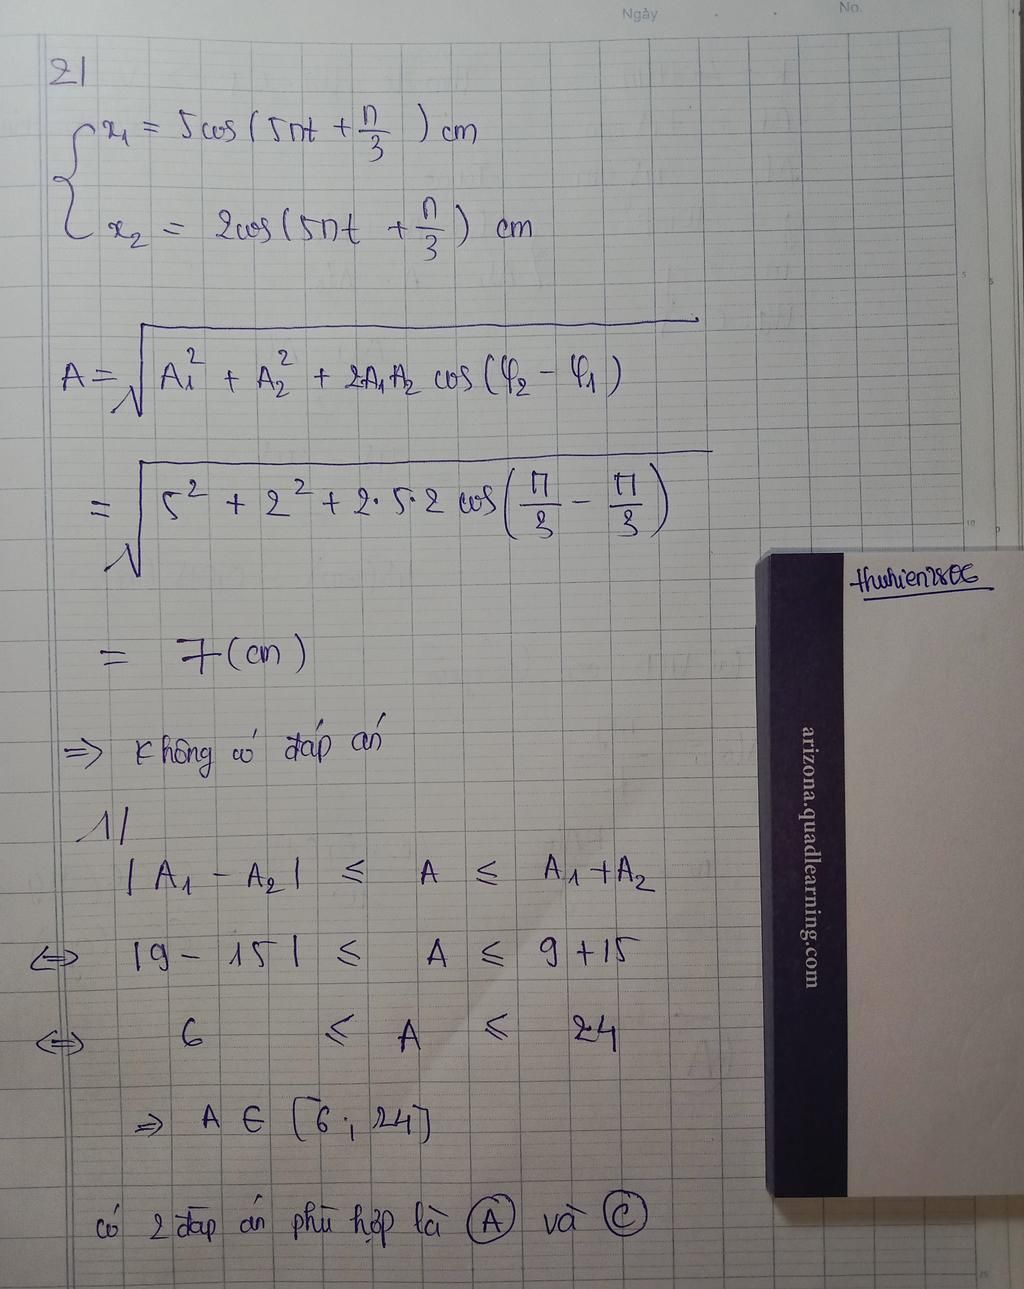 Ngày
No.
2/
x₁ = 5cos(5πt + π/3) cm
x₂ = 2cos(5πt + π/3) cm
A = √(A₁² + A₂² + 2A₁A₂ cos(φ₂ - φ₁))
= √(5² + 2² + 2·5·2 cos(π/3 - π/3))
= 7(cm)
⇒ Không có đáp án
1/
|A₁ - A₂| ≤ A ≤ A₁ + A₂
⇔ |9 - 15| ≤ A ≤ 9 + 15
⇔ 6 ≤ A ≤ 24
⇒ A ∈ [6; 24]
có 2 đáp án phù hợp là A và C
arizona.quadlearning.com